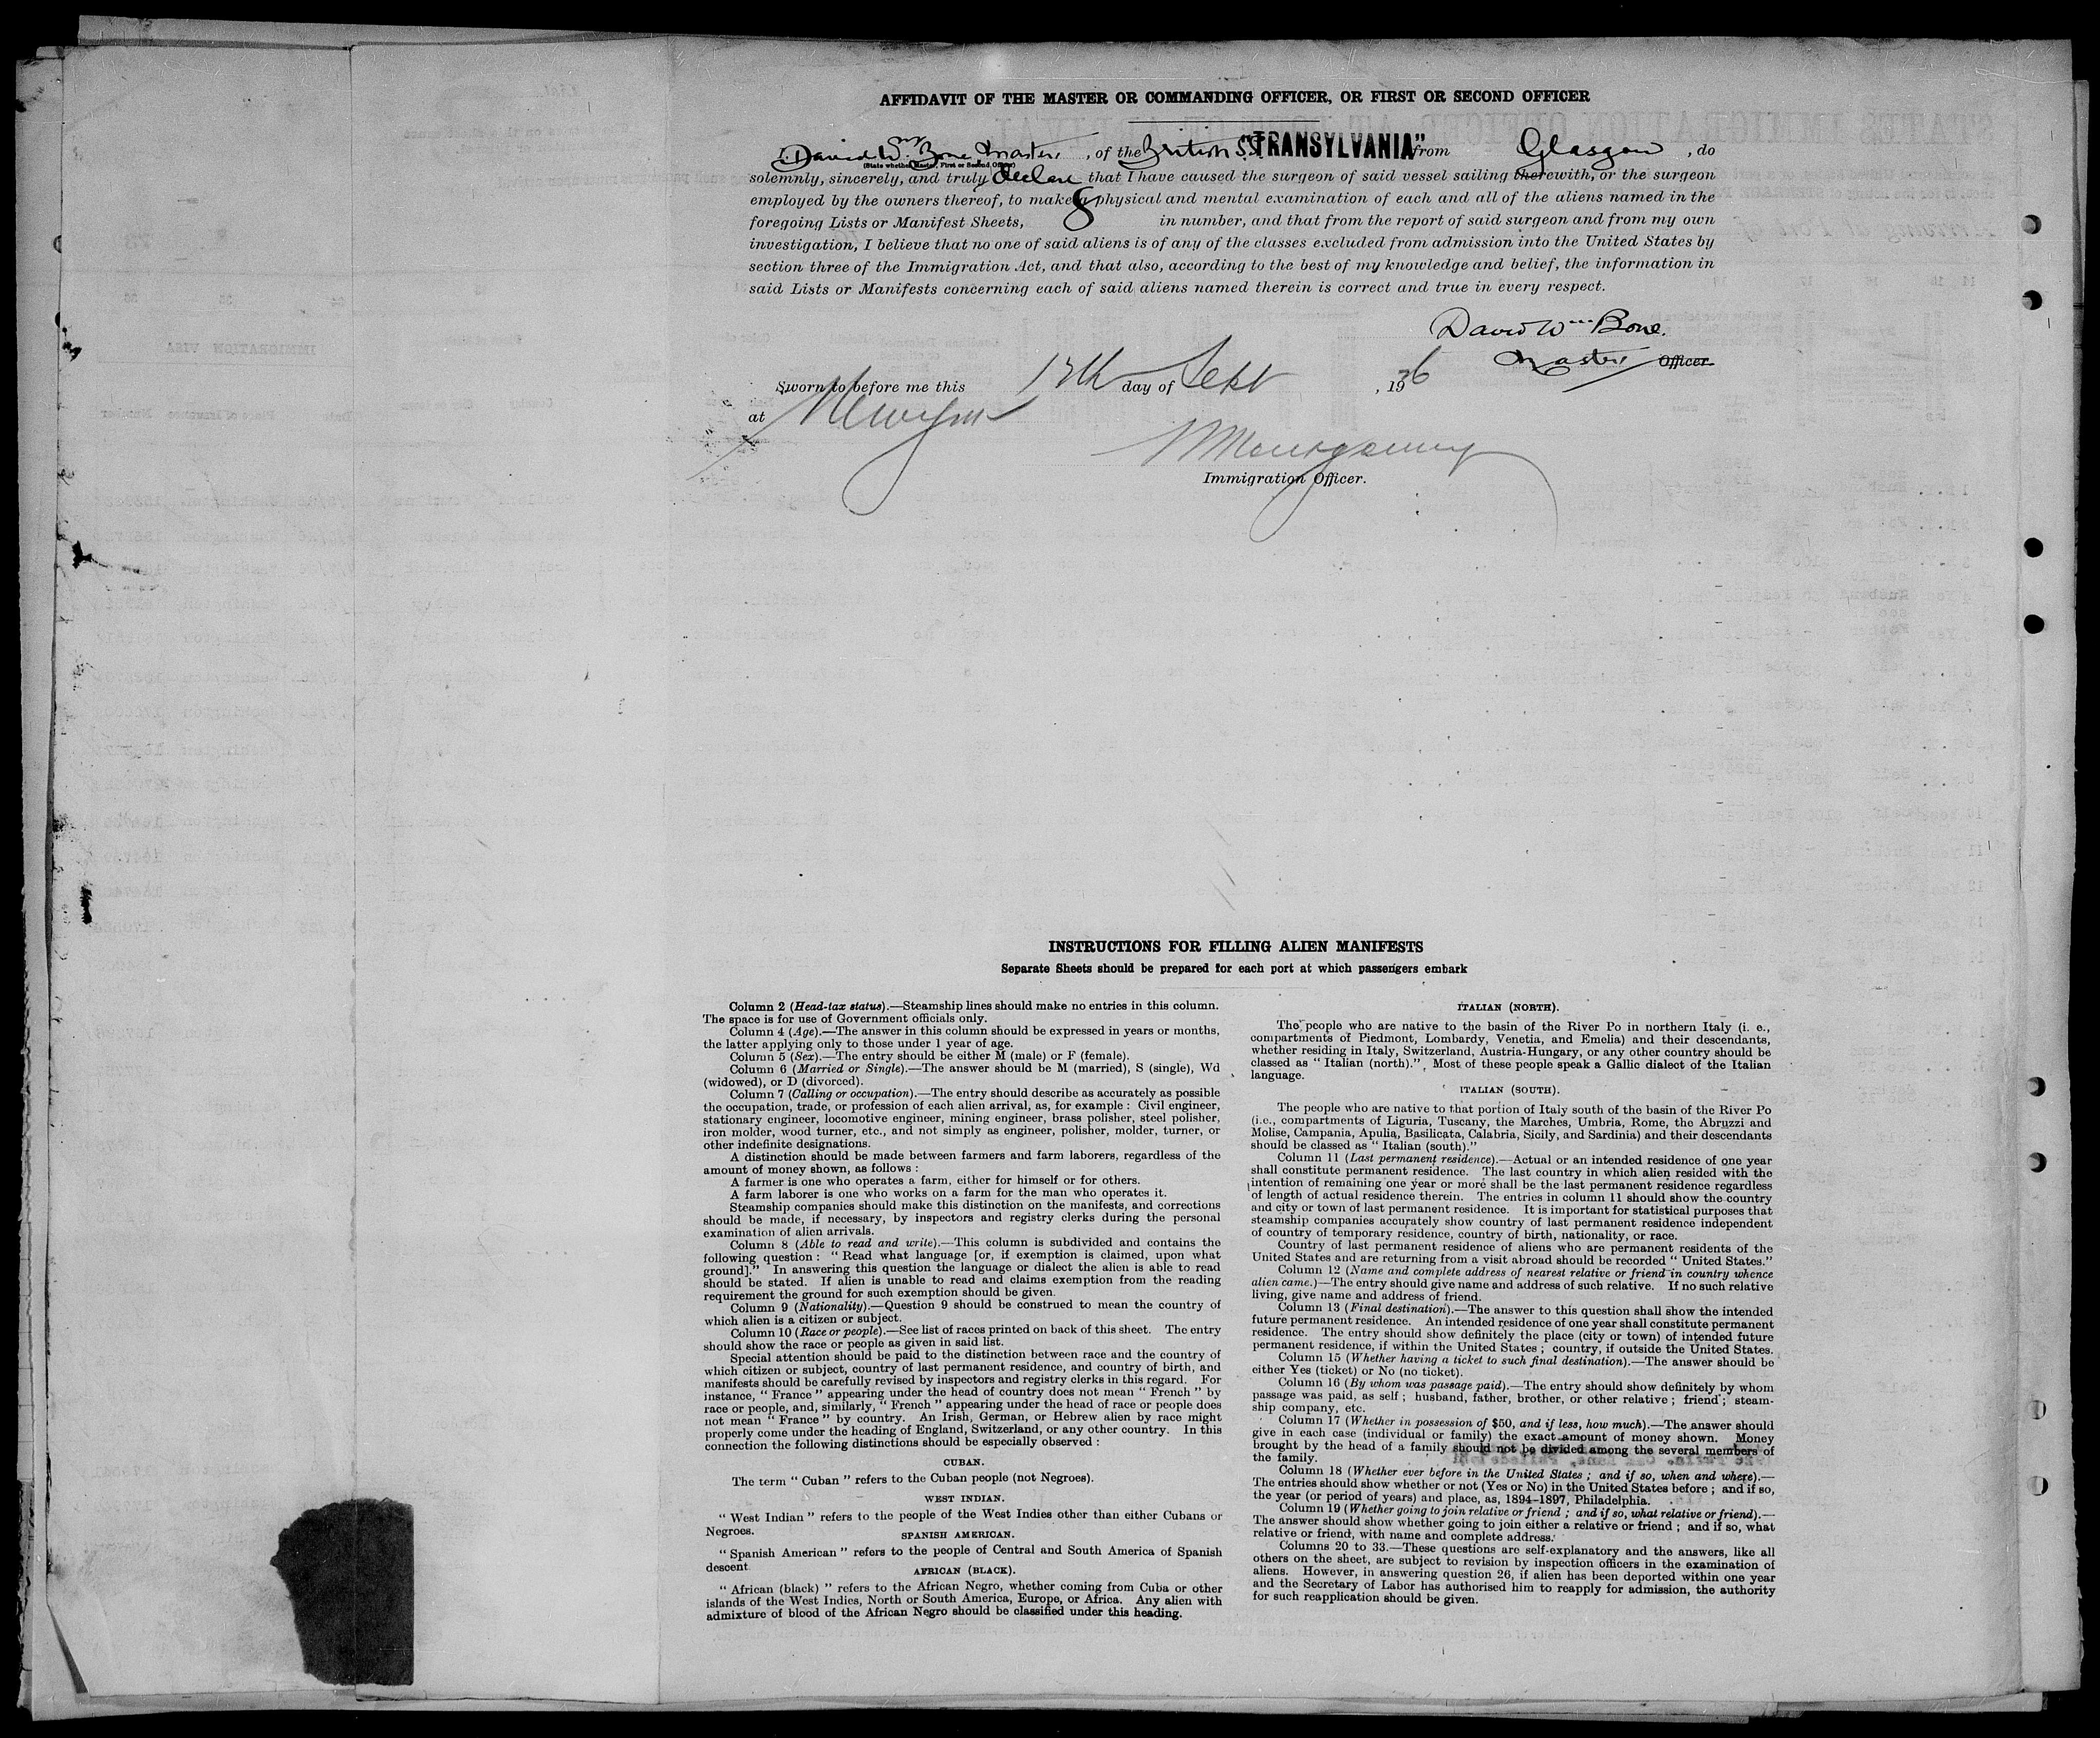 AFFIDAVIT OF THE MASTER OR COMMANDING OFFICER, OR FIRST OR SECOND OFFICER
I, David Wm Bone Master, of the British S.S. "TRANSYLVANIA" from Glasgow, do
(State whether Master, First or Second Officer)
solemnly, sincerely, and truly declare that I have caused the surgeon of said vessel sailing therewith, or the surgeon
employed by the owners thereof, to make a physical and mental examination of each and all of the aliens named in the
foregoing Lists or Manifest Sheets, 8 in number, and that from the report of said surgeon and from my own
investigation, I believe that no one of said aliens is of any of the classes excluded from admission into the United States by
section three of the Immigration Act, and that also, according to the best of my knowledge and belief, the information in
said Lists or Manifests concerning each of said aliens named therein is correct and true in every respect.
David Wm Bone.
Master Officer
Sworn to before me this day of Sept, 1936
at New York
Montgomery
Immigration Officer.
INSTRUCTIONS FOR FILLING ALIEN MANIFESTS
Separate Sheets should be prepared for each port at which passengers embark
Column 2 (Head-tax status).—Steamship lines should make no entries in this column.
The space is for use of Government officials only.
Column 4 (Age).—The answer in this column should be expressed in years or months,
the latter applying only to those under 1 year of age.
Column 5 (Sex).—The entry should be either M (male) or F (female).
Column 6 (Married or Single).—The answer should be M (married), S (single), Wd
(widowed), or D (divorced).
Column 7 (Calling or occupation).—The entry should describe as accurately as possible
the occupation, trade, or profession of each alien arrival, as, for example : Civil engineer,
stationary engineer, locomotive engineer, mining engineer, brass polisher, steel polisher,
iron molder, wood turner, etc., and not simply as engineer, polisher, molder, turner, or
other indefinite designations.
A distinction should be made between farmers and farm laborers, regardless of the
amount of money shown, as follows :
A farmer is one who operates a farm, either for himself or for others.
A farm laborer is one who works on a farm for the man who operates it.
Steamship companies should make this distinction on the manifests, and corrections
should be made, if necessary, by inspectors and registry clerks during the personal
examination of alien arrivals.
Column 8 (Able to read and write).—This column is subdivided and contains the
following question : "Read what language [or, if exemption is claimed, upon what
ground]." In answering this question the language or dialect the alien is able to read
should be stated. If alien is unable to read and claims exemption from the reading
requirement the ground for such exemption should be given.
Column 9 (Nationality).—Question 9 should be construed to mean the country of
which alien is a citizen or subject.
Column 10 (Race or people).—See list of races printed on back of this sheet. The entry
should show the race or people as given in said list.
Special attention should be paid to the distinction between race and the country of
which citizen or subject, country of last permanent residence, and country of birth, and
manifests should be carefully revised by inspectors and registry clerks in this regard. For
instance, "France" appearing under the head of country does not mean "French" by
race or people, and, similarly, "French" appearing under the head of race or people does
not mean "France" by country. An Irish, German, or Hebrew alien by race might
properly come under the heading of England, Switzerland, or any other country. In this
connection the following distinctions should be especially observed :
CUBAN.
The term "Cuban" refers to the Cuban people (not Negroes).
WEST INDIAN.
"West Indian" refers to the people of the West Indies other than either Cubans or
Negroes.
SPANISH AMERICAN.
"Spanish American" refers to the people of Central and South America of Spanish
descent
AFRICAN (BLACK).
"African (black)" refers to the African Negro, whether coming from Cuba or other
islands of the West Indies, North or South America, Europe, or Africa. Any alien with
admixture of blood of the African Negro should be classified under this heading.
ITALIAN (NORTH).
The people who are native to the basin of the River Po in northern Italy (i. e.,
compartments of Piedmont, Lombardy, Venetia, and Emelia) and their descendants,
whether residing in Italy, Switzerland, Austria-Hungary, or any other country should be
classed as "Italian (north)." Most of these people speak a Gallic dialect of the Italian
language.
ITALIAN (SOUTH).
The people who are native to that portion of Italy south of the basin of the River Po
(i.e., compartments of Liguria, Tuscany, the Marches, Umbria, Rome, the Abruzzi and
Molise, Campania, Apulia, Basilicata, Calabria, Sicily, and Sardinia) and their descendants
should be classed as "Italian (south)."
Column 11 (Last permanent residence).—Actual or an intended residence of one year
shall constitute permanent residence. The last country in which alien resided with the
intention of remaining one year or more shall be the last permanent residence regardless
of length of actual residence therein. The entries in column 11 should show the country
and city or town of last permanent residence. It is important for statistical purposes that
steamship companies accurately show country of last permanent residence independent
of country of temporary residence, country of birth, nationality, or race.
Country of last permanent residence of aliens who are permanent residents of the
United States and are returning from a visit abroad should be recorded "United States."
Column 12 (Name and complete address of nearest relative or friend in country whence
alien came.)—The entry should give name and address of such relative. If no such relative
living, give name and address of friend.
Column 13 (Final destination).—The answer to this question shall show the intended
future permanent residence. An intended residence of one year shall constitute permanent
residence. The entry should show definitely the place (city or town) of intended future
permanent residence, if within the United States ; country, if outside the United States.
Column 15 (Whether having a ticket to such final destination).—The answer should be
either Yes (ticket) or No (no ticket).
Column 16 (By whom was passage paid).—The entry should show definitely by whom
passage was paid, as self ; husband, father, brother, or other relative ; friend ; steam-
ship company, etc.
Column 17 (Whether in possession of $50, and if less, how much).—The answer should
give in each case (individual or family) the exact amount of money shown. Money
brought by the head of a family should not be divided among the several members of
the family.
Column 18 (Whether ever before in the United States ; and if so, when and where).—
The entries should show whether or not (Yes or No) in the United States before ; and if so,
the year (or period of years) and place, as, 1894–1897, Philadelphia.
Column 19 (Whether going to join relative or friend ; and if so, what relative or friend).—
The answer should show whether going to join either a relative or friend ; and if so, what
relative or friend, with name and complete address.
Columns 20 to 33.—These questions are self-explanatory and the answers, like all
others on the sheet, are subject to revision by inspection officers in the examination of
aliens. However, in answering question 26, if alien has been deported within one year
and the Secretary of Labor has authorised him to reapply for admission, the authority
for such reapplication should be given.